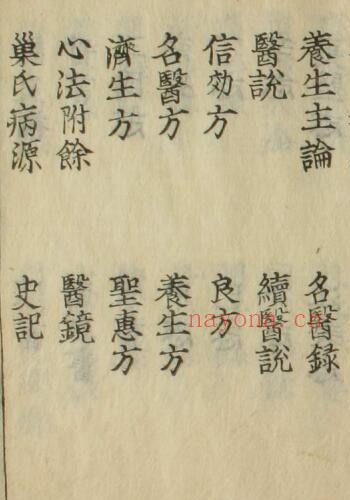 養生主論 名醫録
醫說 續醫說
信効方 良方
名醫方 養生方
濟生方 聖惠方
心法附餘 醫鏡
巢氏病源 史記
nayona.cn